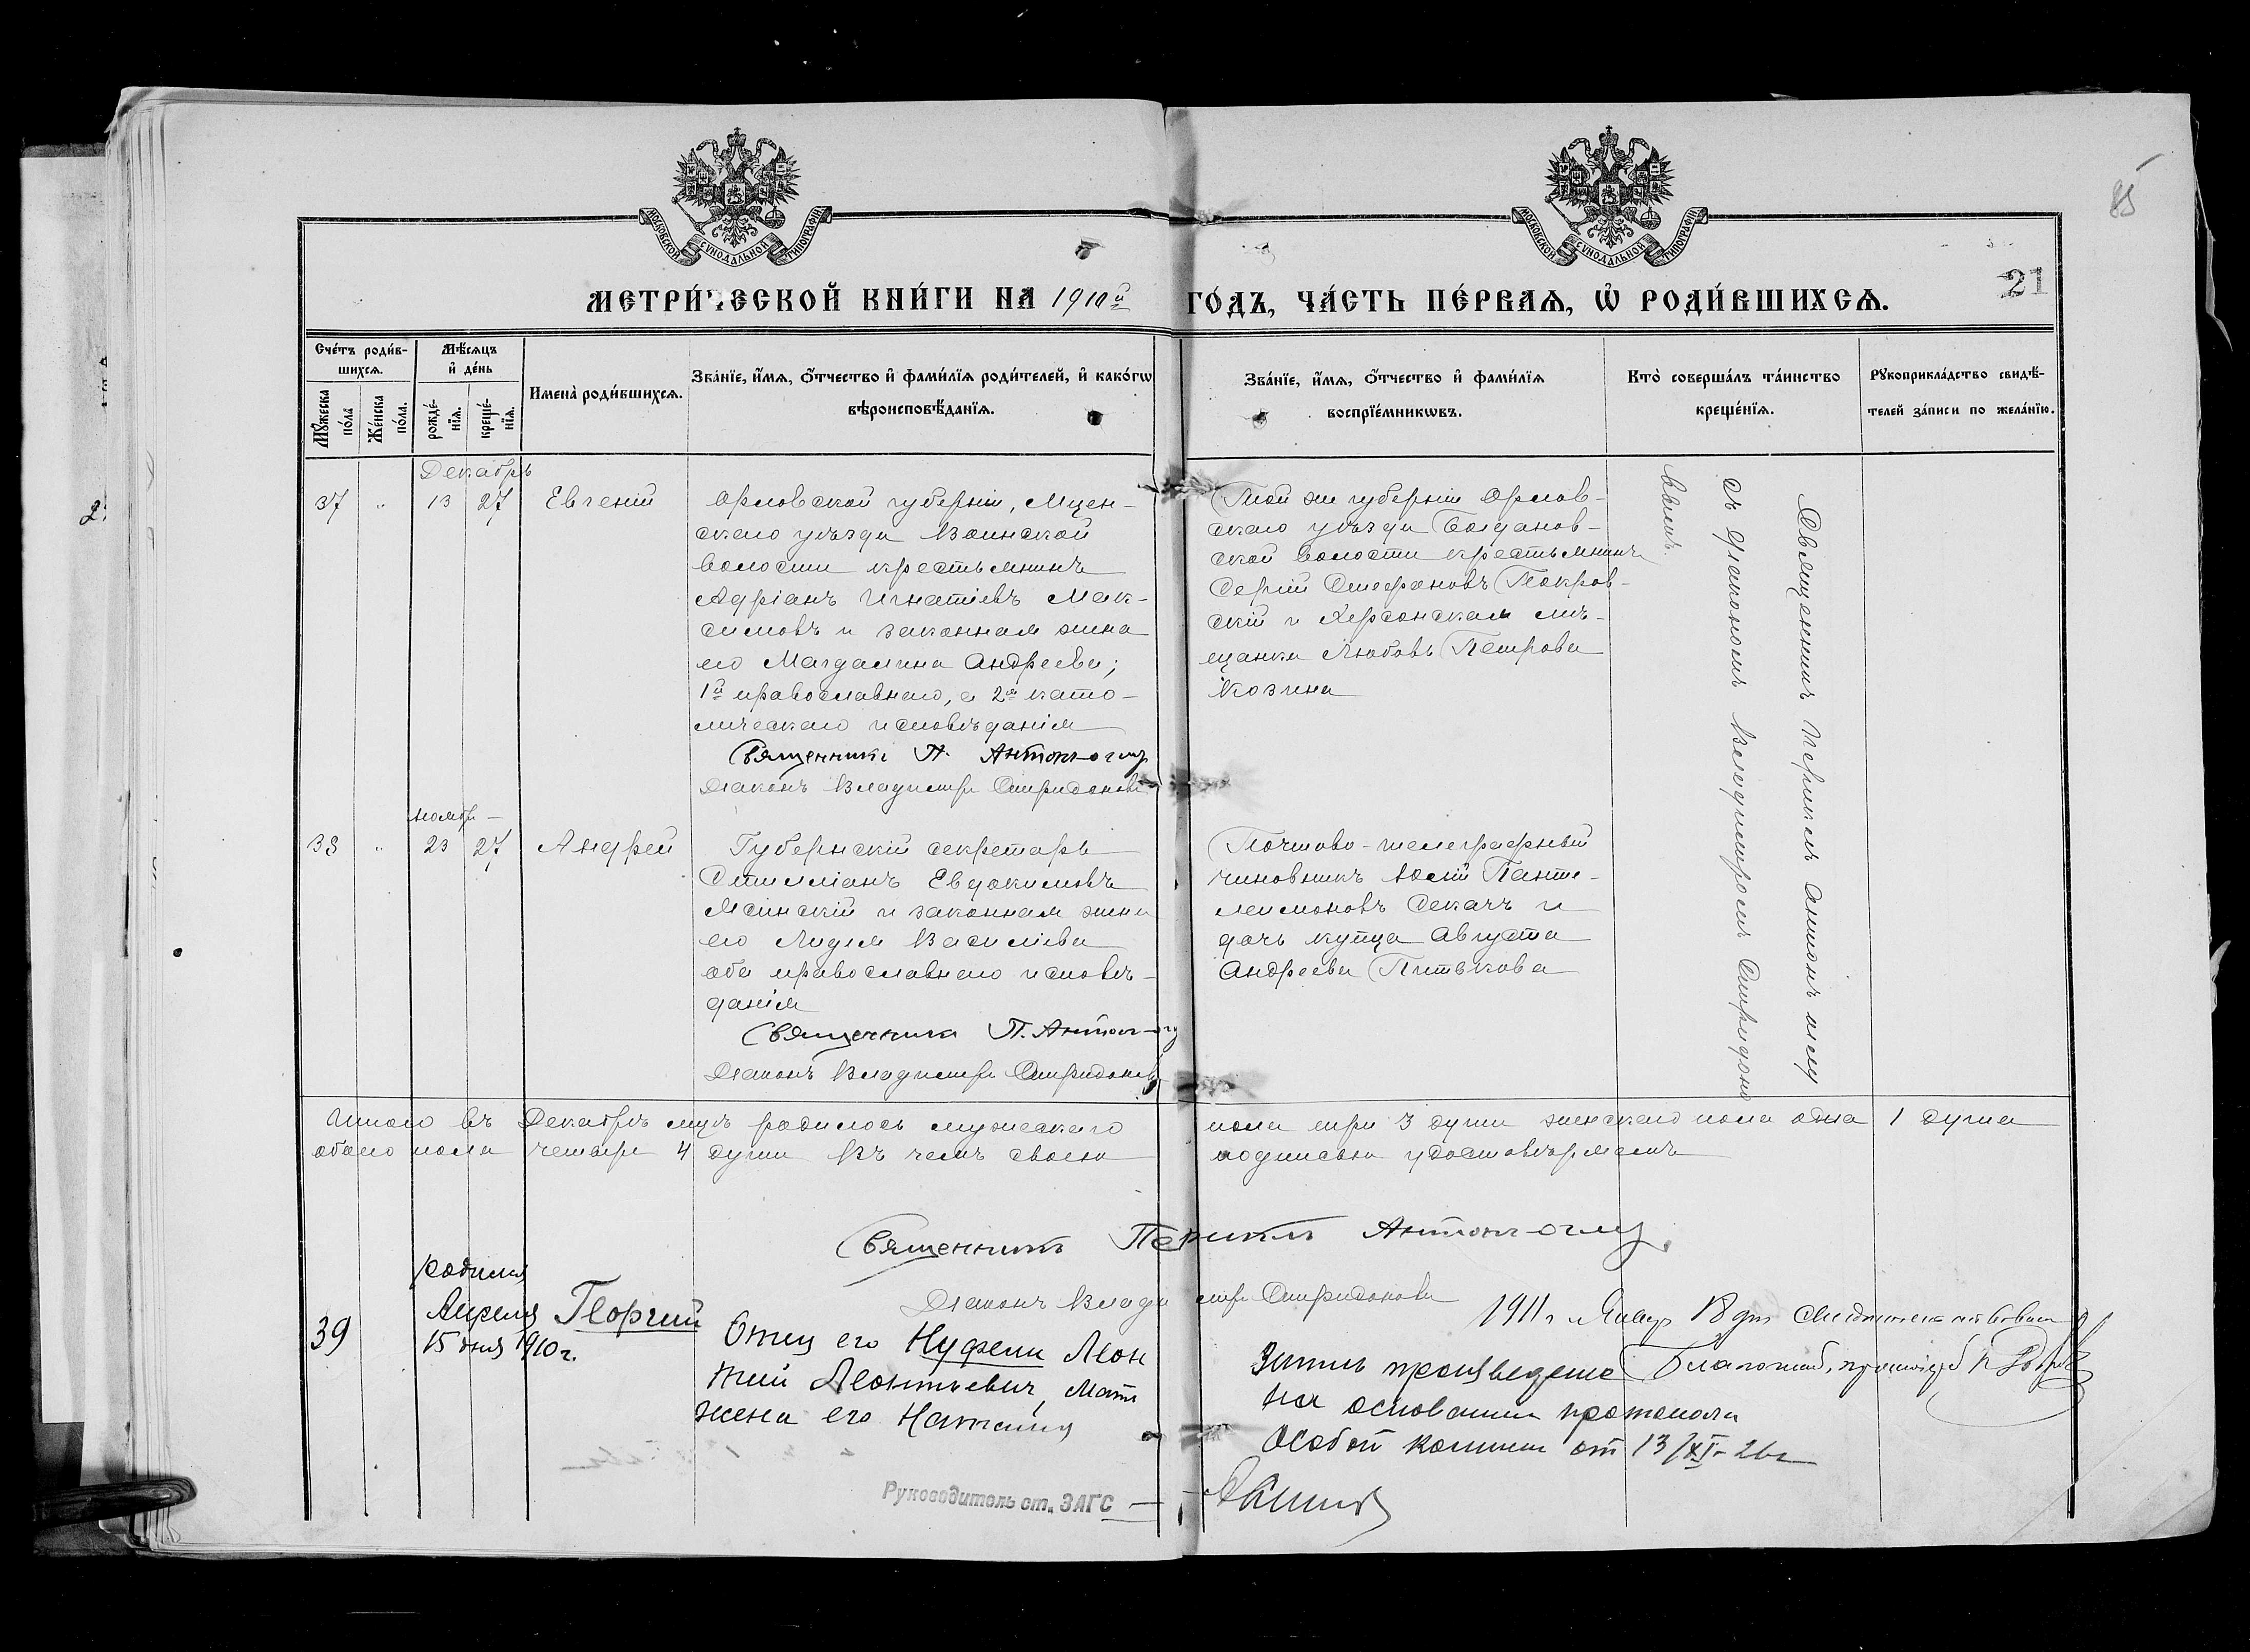 85
МОСКОВСКОЙ СУНОДАЛЬНОЙ ТИПОГРАФІИ
МОСКОВСКОЙ СУНОДАЛЬНОЙ ТИПОГРАФІИ
21
МЕТРИ́ЧЕСКОЙ КНИ́ГИ НА 1910й ГО́ДЪ, ЧА́СТЬ ПЕ́РВАѦ, Ѡ҆ РОДИ́ВШИХСѦ.
Сче́тъ роди́в-
шихсѧ.
Мѣ́сѧцъ
и҆ де́нь
Мꙋ́жеска
по́ла
Же́нска
по́ла.
рожде́-
нїѧ.
креще́-
нїѧ.
Имена̀ роди́вшихсѧ.
Зва́нїе, и҆́мѧ, ѻ҆́тчество и҆ фами́лїѧ роди́телей, и҆ како́гѡ
вѣроисповѣ́данїѧ.
Зва́нїе, и҆́мѧ, ѻ҆́тчество и҆ фами́лїѧ
воспрїе́мникѡвъ.
Кто̀ соверша́лъ та́инство
креще́нїѧ.
Рꙋкоприкла́дство свидѣ́-
телей за́писи по жела́нїю.
Декабрь
37 " 13 27 Евгеній
Орловской губерніи, Мцен-
скаго уѣзда Воинской
волости крестьянинъ
Адріанъ Игнатіевъ Мак-
симовъ и законная жена
его Магдалина Андреева;
1й православнаго, а 2я като-
лическаго исповѣданія
Священникъ П. Антонъ-оглу
Діаконъ Владимиръ Спиридоновъ
Той же губерніи Орлов-
скаго уѣзда Богданов-
ской волости крестьянинъ
Сергій Стефановъ Покров-
скій и Херсонская мѣ-
щанка Любовь Петрова
Козина
Священникъ Периклъ Антонъ-оглу
съ діакономъ Владимиромъ Спиридоно-
вымъ.
Ноябрь
38 " 23 27 Андрей
Губернскій секретарь
Стилліанъ Евдокимовъ
Ясинскій и законная жена
его Лидія Василіева
оба православнаго исповѣ-
данія
Священникъ П. Антонъ-оглу
Діаконъ Владимиръ Спиридоновъ
Почтово-телеграфный
чиновникъ Юлій Панте-
леимоновъ Секачъ и
дочь купца Августа
Андреева Питькова
Итого въ Декабрѣ мцѣ родилось мужескаго пола три 3 души женскаго пола одна 1 душа
обоего пола четыре 4 души въ чемъ своею подписью удостовѣряемъ
Священникъ Периклъ Антонъ-оглу
Діаконъ Владимиръ Спиридоновъ
1911 г Янвр 18 дня
родился
39 Апреля 15 дня 1910 г. Георгий
Отец его Нуфели Леон
тий Леонтьевич, Мать
жена его Наталия
Запись произведена
на основании протокола
Особой комиссии от 13/XI-26г
Руководитель ст. ЗАГС